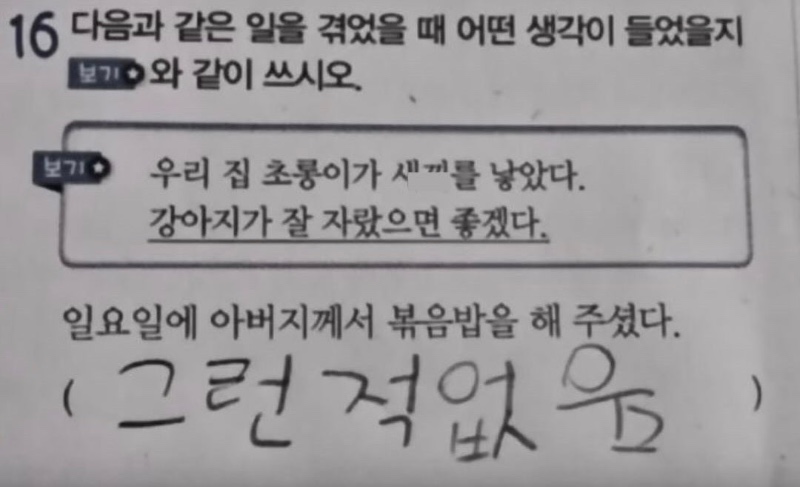 16 다음과 같은 일을 겪었을 때 어떤 생각이 들었을지
보기 와 같이 쓰시오.
보기 우리 집 초롱이가 를 낳았다.
강아지가 잘 자랐으면 좋겠다.
일요일에 아버지께서 볶음밥을 해 주셨다.
( 그런 적 없음 )